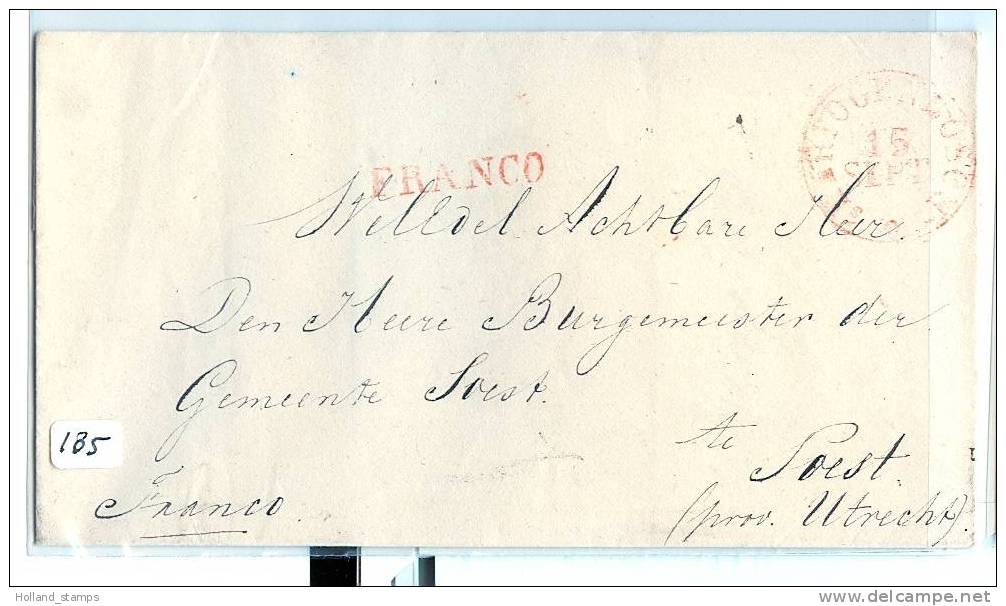 FRANCO
15
SEPT
WelEdel Achtbare Heer
Den Heere Burgemeester der
Gemeente Soest.
te
Soest.
(prov. Utrecht).
Franco.
185
Holland_stamps
www.delcampe.net